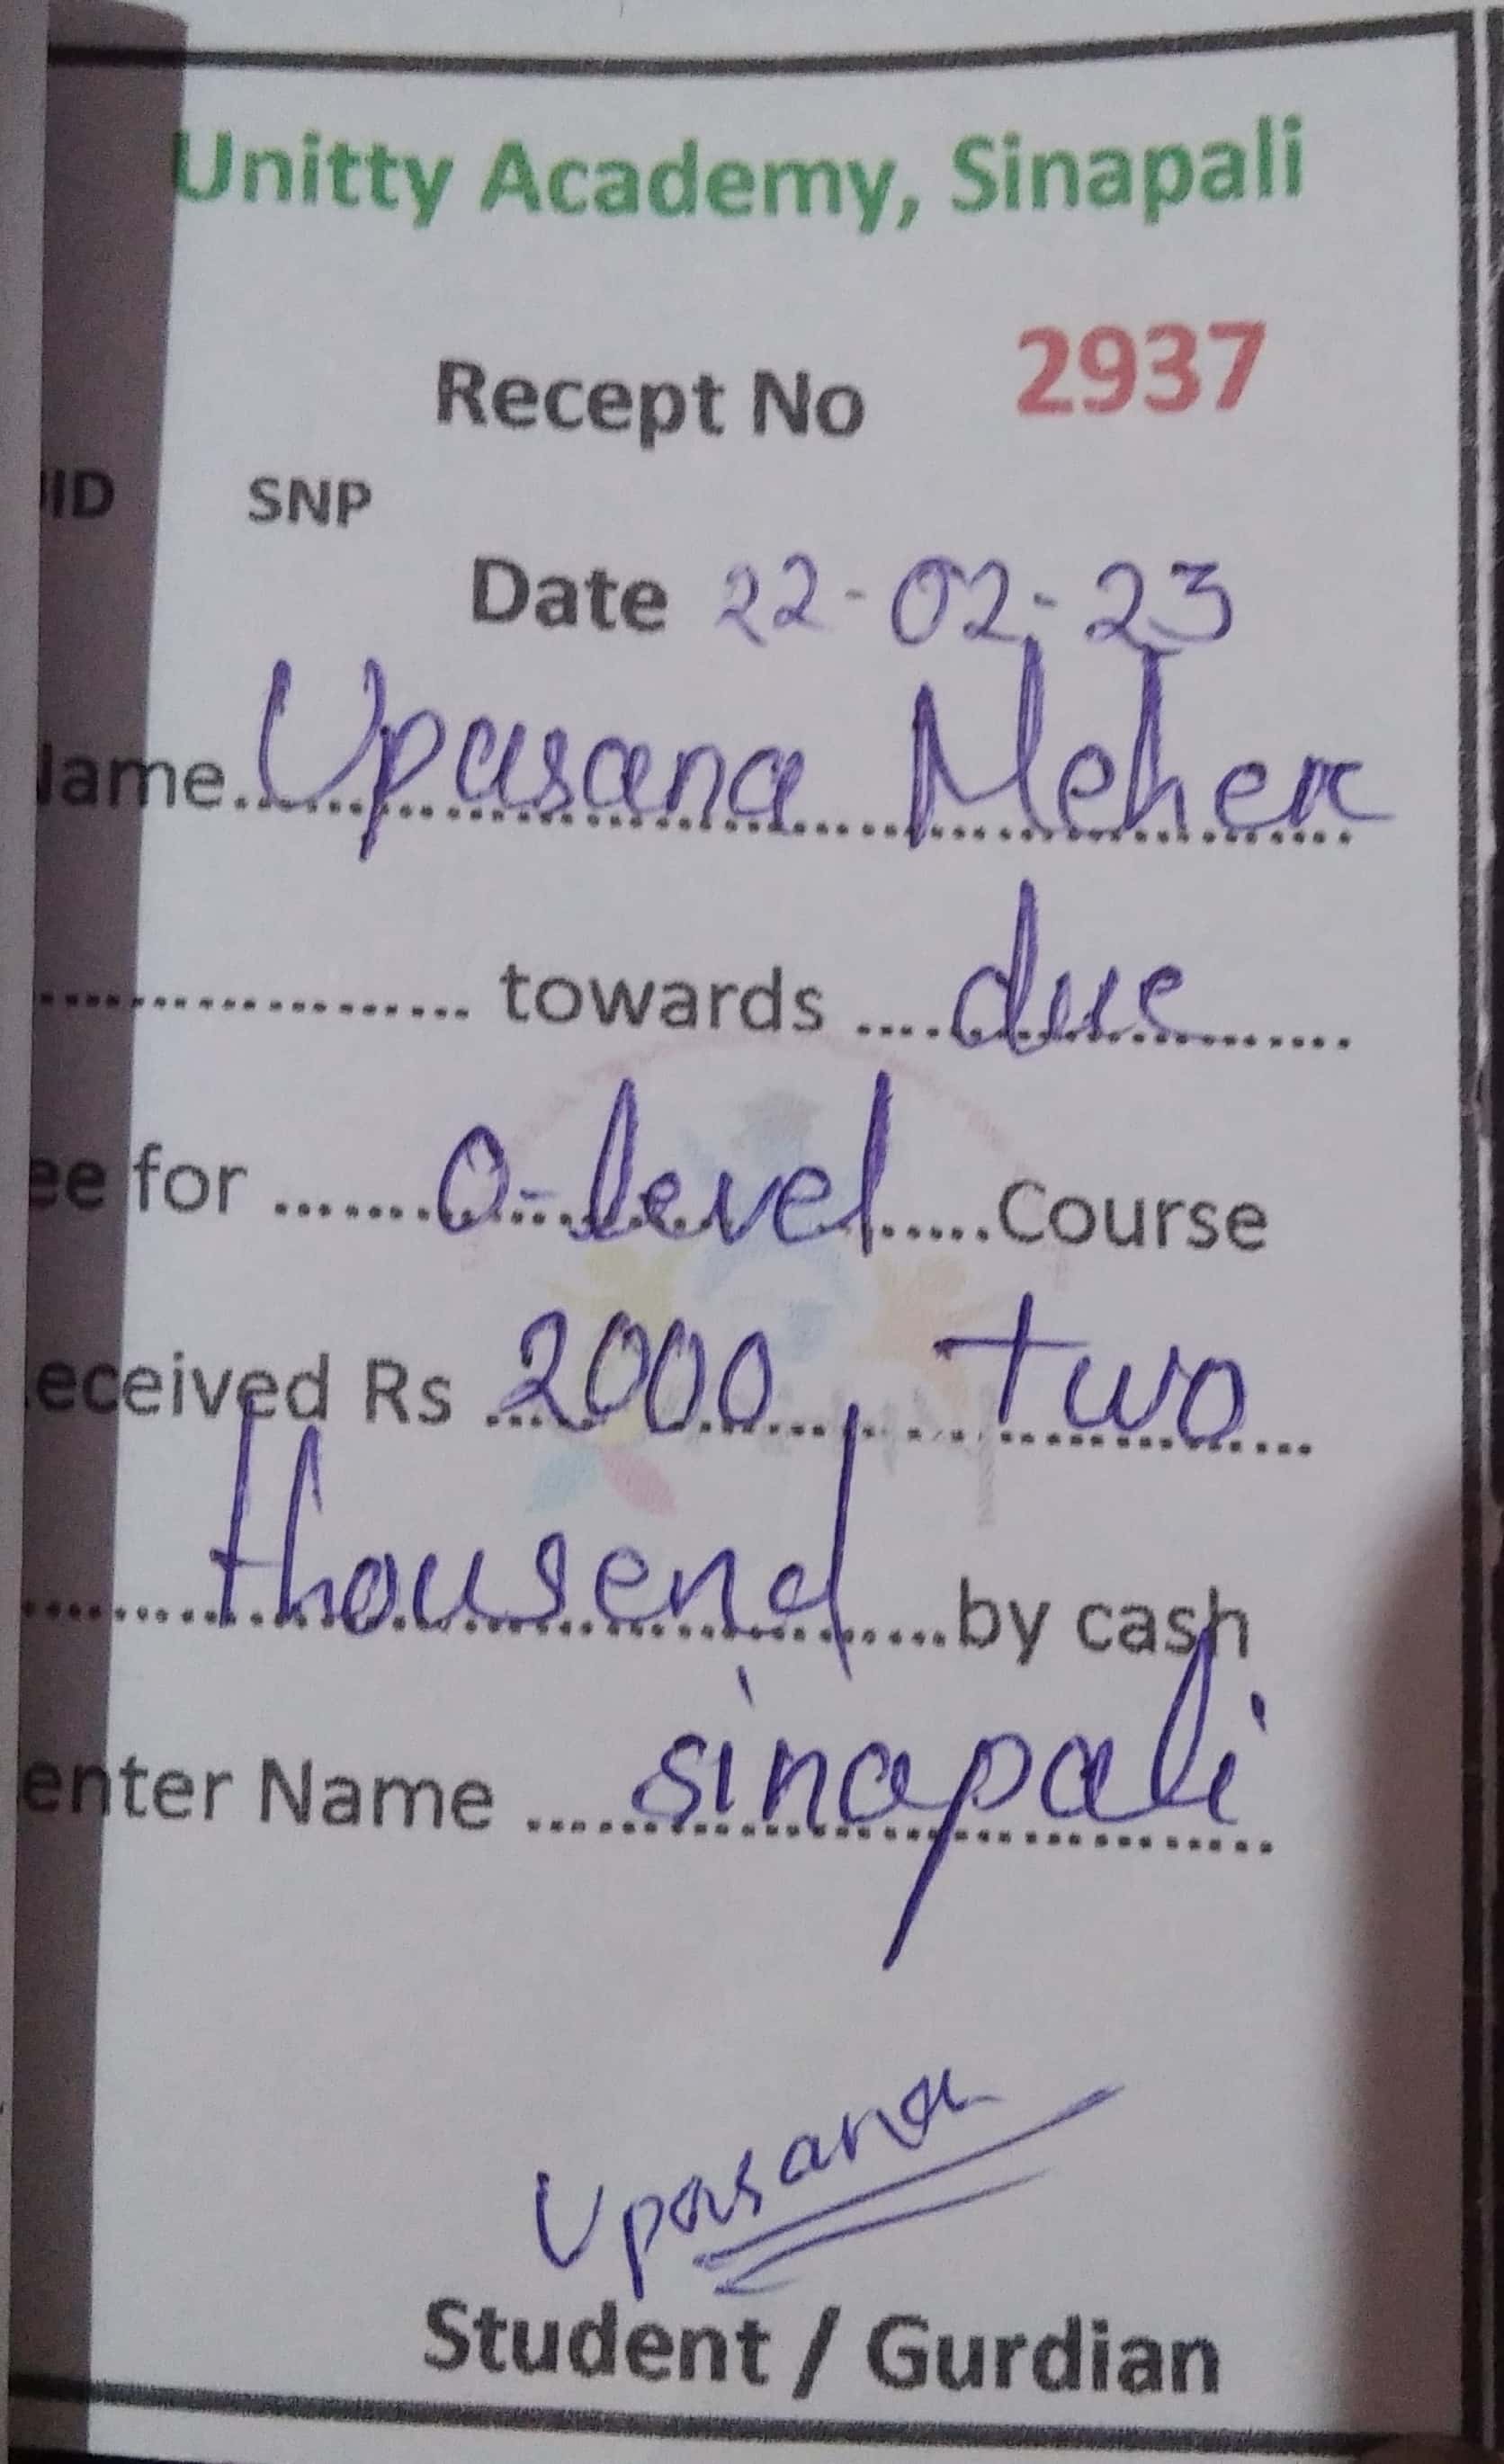 Unitty Academy, Sinapali
Recept No 2937
ID SNP
Date 22-02-23
ame Upasana Meher
towards due
ee for O-level Course
eceived Rs 2000, two
thousend by cash
enter Name sinapali
Upasana
Student / Gurdian